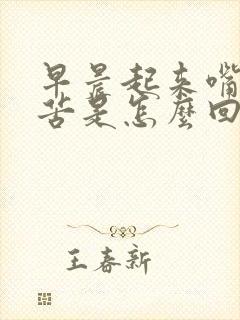 早晨起来嘴
苦是怎麼回
王春新